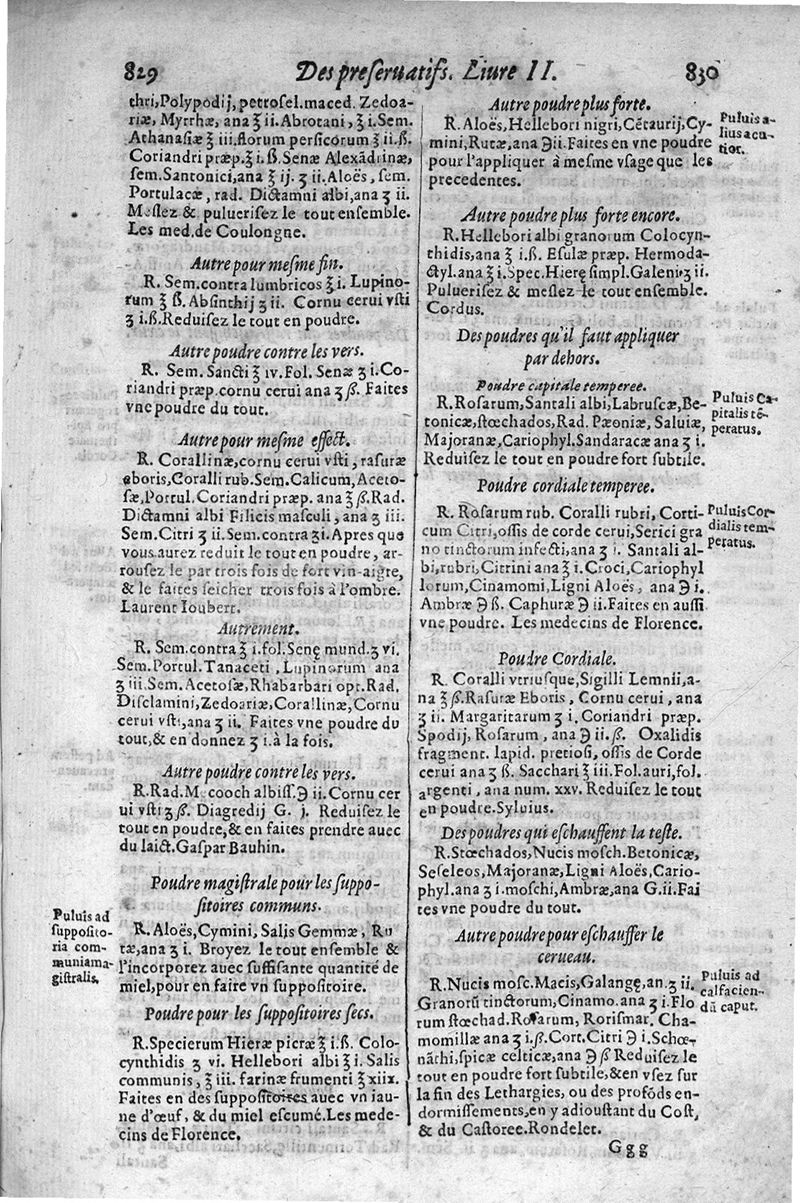 829
Des preſeruatifs. Liure II.
830
thri, Polypodij, petroſel. maced. Zedoa-
riæ, Myrrhæ, ana ʒ ii. Abrotani, ℥ i. Sem.
Athanaſiæ ℥ iii. florum perſicorum ℥ ii. ß.
Coriandri præp. ℥ i. ß. Senæ Alexãdrinæ,
ſem. Santonici, ana ℥ ij. ʒ ii. Aloës, ſem.
Portulacæ, rad. Dictamni albi, ana ʒ ii.
Meſlez & pulueriſez le tout enſemble.
Les med. de Coulongne.
Autre pour meſme fin.
R. Sem. contra lumbricos ℥ i. Lupino-
rum ℥ ß. Abſinthij ʒ ii. Cornu cerui vſti
ʒ i. ß. Reduiſez le tout en poudre.
Autre poudre contre les vers.
R. Sem. Sancti ℥ iv. Fol. Senæ ℥ i. Co-
riandri præp. cornu cerui ana ʒ ß. Faites
vne poudre du tout.
Autre pour meſme effect.
R. Corallinæ, cornu cerui vſti, raſuræ
eboris, Coralli rub. Sem. Calicum, Aceto-
ſæ, Portul. Coriandri præp. ana ℥ ß. Rad.
Dictamni albi Filicis maſculi, ana ʒ iii.
Sem. Citri ʒ ii. Sem. contra ʒ i. Apres que
vous aurez reduit le tout en poudre, ar-
rouſez le par trois fois de fort vin-aigre,
& le faites ſeicher trois fois à l'ombre.
Laurent Ioubert.
Autrement.
R. Sem. contra ℥ i. fol. Senę mund. ʒ vi.
Sem. Portul. Tanaceti, Lupinorum ana
ʒ iii. Sem. Acetoſæ, Rhabarbari opt. Rad.
Diſclamini, Zedoariæ, Corallinæ, Cornu
cerui vſti, ana ʒ ii. Faites vne poudre du
tout, & en donnez ʒ i. à la fois.
Autre poudre contre les vers.
R. Rad. Mecooch albiſſ. ℈ ii. Cornu cer
ui vſti ʒ ß. Diagredij G. j. Reduiſez le
tout en poudre, & en faites prendre auec
du laict. Gaſpar Bauhin.
Poudre magiſtrale pour les ſuppo-
ſitoires communs.
Puluis ad
ſuppoſito-
ria com-
muniama-
giſtralis.
R. Aloës, Cymini, Salis Gemmæ, Ru
tæ, ana ʒ i. Broyez le tout enſemble &
l'incorporez auec ſuffiſante quantité de
miel, pour en faire vn ſuppoſitoire.
Poudre pour les ſuppoſitoires ſecs.
R. Specierum Hieræ picræ ℥ i. ß. Colo-
cynthidis ʒ vi. Hellebori albi ℥ i. Salis
communis, ℥ iii. farinæ frumenti ℥ xiix.
Faites en des ſuppoſitoires auec vn iau-
ne d'œuf, & du miel eſcumé. Les mede-
cins de Florence.
Autre poudre plus forte.
R. Aloës, Hellebori nigri, Cẽtaurij, Cy-
mini, Rutæ, ana ℈ ii. Faites en vne poudre
pour l'appliquer à meſme vſage que les
precedentes.
Puluis a-
lius acu-
tior.
Autre poudre plus forte encore.
R. Hellebori albi granorum Colocyn-
thidis, ana ℥ i. ß. Eſulæ præp. Hermoda-
ctyl. ana ℥ i. Spec. Hierę ſimpl. Galeni ʒ ii.
Puluerifez & meſlez le tout enſemble.
Cordus.
Des poudres qu'il faut appliquer
par dehors.
Poudre capitale temperee.
R. Roſarum, Santali albi, Labruſcæ, Be-
tonicæ, ſtœchados, Rad. Pæoniæ, Saluiæ,
Majoranæ, Cariophyl. Sandaracæ ana ʒ i.
Reduiſez le tout en poudre fort ſubtile.
Puluis Ca-
pitalis tẽ-
peratus.
Poudre cordiale temperee.
R. Roſarum rub. Coralli rubri, Corti-
cum Citri, oſſis de corde cerui, Serici gra
no tinctorum infecti, ana ʒ i. Santali al-
bi, rubri, Citrini ana ℥ i. Croci, Cariophyl
lorum, Cinamomi, Ligni Aloës, ana ℈ i.
Ambræ ℈ ß. Caphuræ ℈ ii. Faites en auſſi
vne poudre. Les medecins de Florence.
Puluis Cor-
dialis tem-
peratus.
Poudre Cordiale.
R. Coralli vtriuſque, Sigilli Lemnii, a-
na ℥ ß. Raſuræ Eboris, Cornu cerui, ana
ʒ ii. Margaritarum ʒ i. Coriandri præp.
Spodij, Roſarum, ana ℈ ii. ß. Oxalidis
fragment. lapid. pretioſi, oſſis de Corde
cerui ana ʒ ß. Sacchari ℥ iii. Fol. auri, fol.
argenti, ana num. xxv. Reduiſez le tout
en poudre. Syluius.
Des poudres qui eſchauffent la teſte.
R. Stœchados, Nucis moſch. Betonicæ,
Seſeleos, Majoranæ, Ligni Aloës, Cario-
phyl. ana ʒ i. moſchi, Ambræ, ana G. ii. Fai
tes vne poudre du tout.
Autre poudre pour eſchauffer le
cerueau.
R. Nucis moſc. Macis, Galangę, an. ʒ ii.
Granorũ tinctorum, Cinamo. ana ʒ i. Flo
rum ſtœchad. Roſarum, Roriſmar. Cha-
momillæ ana ʒ i. ß. Cort. Citri ℈ i. Schœ-
nãthi, ſpicæ celticæ, ana ℈ ß Reduiſez le
tout en poudre fort ſubtile, & en vſez ſur
la fin des Lethargies, ou des profõds en-
dormiſſements, en y adiouſtant du Coſt,
& du Caſtoree. Rondelet.
Puluis ad
calfacien-
dũ caput.
Ggg